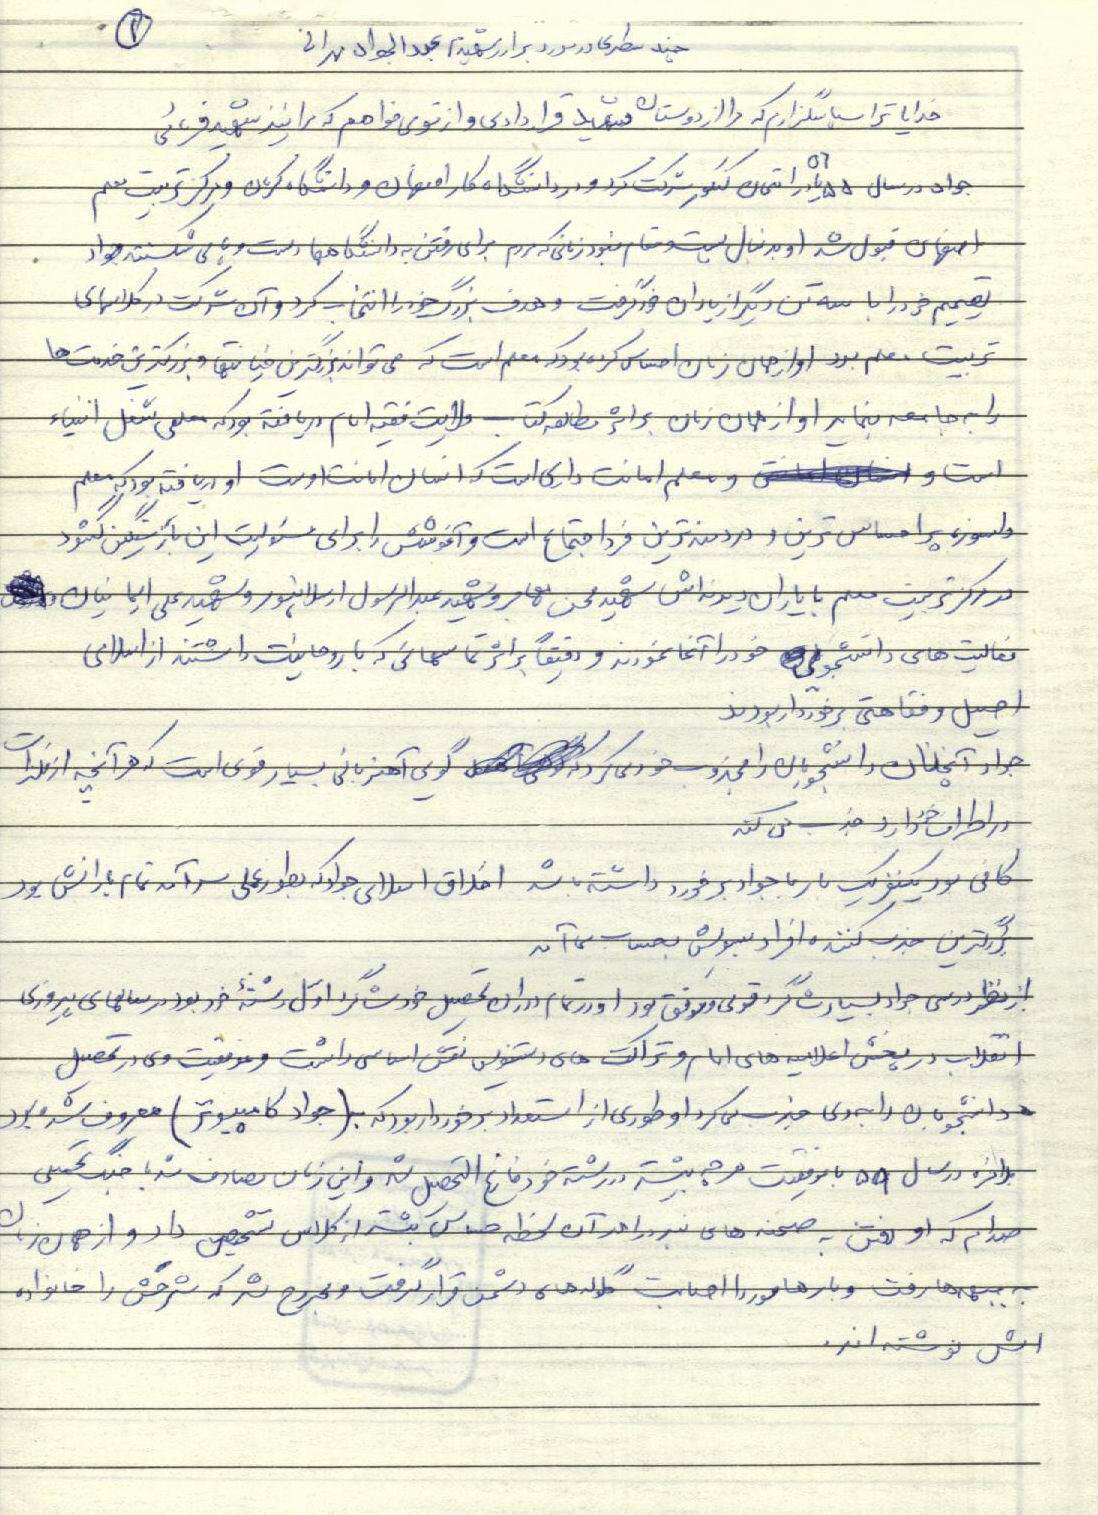 ۲
چند سطری در مورد برادر شهیدم عبدالجواد تهرانی
خدایا ترا سپاسگزارم که مرا از دوستان شهید قرار دادی و از تو می‌خواهم که مرا نیز شهید فرمائی
جواد در سال ۵۵ یا ۵۶ در امتحان کنکور شرکت کرد و در دانشگاه کار اصفهان و دانشگاه کرمان و مرکز تربیت معلم
اصفهان قبول شد او بدنبال پست و مقام نبود زمانی که مردم برای رفتن به دانشگاهها دست و پا می شکستند جواد
تصمیم خود را با سه تن دیگر از یاران خود گرفت و هدف بزرگ خود را انتخاب کرد و آن شرکت در کلاسهای
تربیت معلم بود او از همان زمان احساس کرده بود که معلم است که می تواند بزرگترین خیانتها و بزرگترین خدمت ها
را به جامعه بنماید او از همان زمان بر اثر مطالعه کتاب ولایت فقیه امام دریافته بود که معلمی شغل انبیاء
است و و معلم امانت داری است که انسان امانت اوست او دریافته بود که معلم
دلسوز، پر احساس ترین و دردمندترین فرد اجتماع است و آغوشش را برای مسئولیت این بار سنگین گشود
در مرکز تربیت معلم با یاران دیرینه اش شهید محسن و شهید عبدالرسول و شهید علی ایمانیان
فعالیت های دانشجوئی خود را آغاز نمودند و دقیقاً بر اثر تماسهائی که با روحانیت داشتند از اسلامی
اصیل و فقاهتی برخوردار بودند
جواد آنچنان دانشجویان را مجذوب خود می کرد که گویی آهنربائی بسیار قوی است که هر آنچه از فلزات
در اطراف خود دارد جذب می کند
کافی بود یکنفر یک بار با جواد برخورد داشته باشد اخلاق اسلامی جواد که بطور عملی سرآمد تمام یارانش بود
بزرگترین جذب کننده افراد بسویش بحساب می آمد
از نظر درسی جواد بسیار شاگرد قوی و موفق بود او در تمام دوران تحصیل خود شاگرد اول رشتهٔ خود بود در سالهای پیروزی
انقلاب در پخش اعلامیه های امام و تراکت های دستنویس نقش اساسی داشت و موفقیت وی در تحصیل
دانشجویان را به وی جذب می کرد او طوری از استعداد برخوردار بود که به (جواد کامپیوتر) معروف شده بود
بالاخره در سال ۵۹ با موفقیت هر چه بیشتر در رشته خود فارغ التحصیل شد و این زمان مصادف شد با جنگ تحمیلی
صدام که او رفتن به صحنه های نبرد را در آن لحظه حساس بیشتر از کلاس تشخیص داد و از همان زمان
به جبهه ها رفت و بارها مورد اصابت گلوله های دشمن قرار گرفت و مجروح شد که شرحش را خانواده
اش نوشته اند.